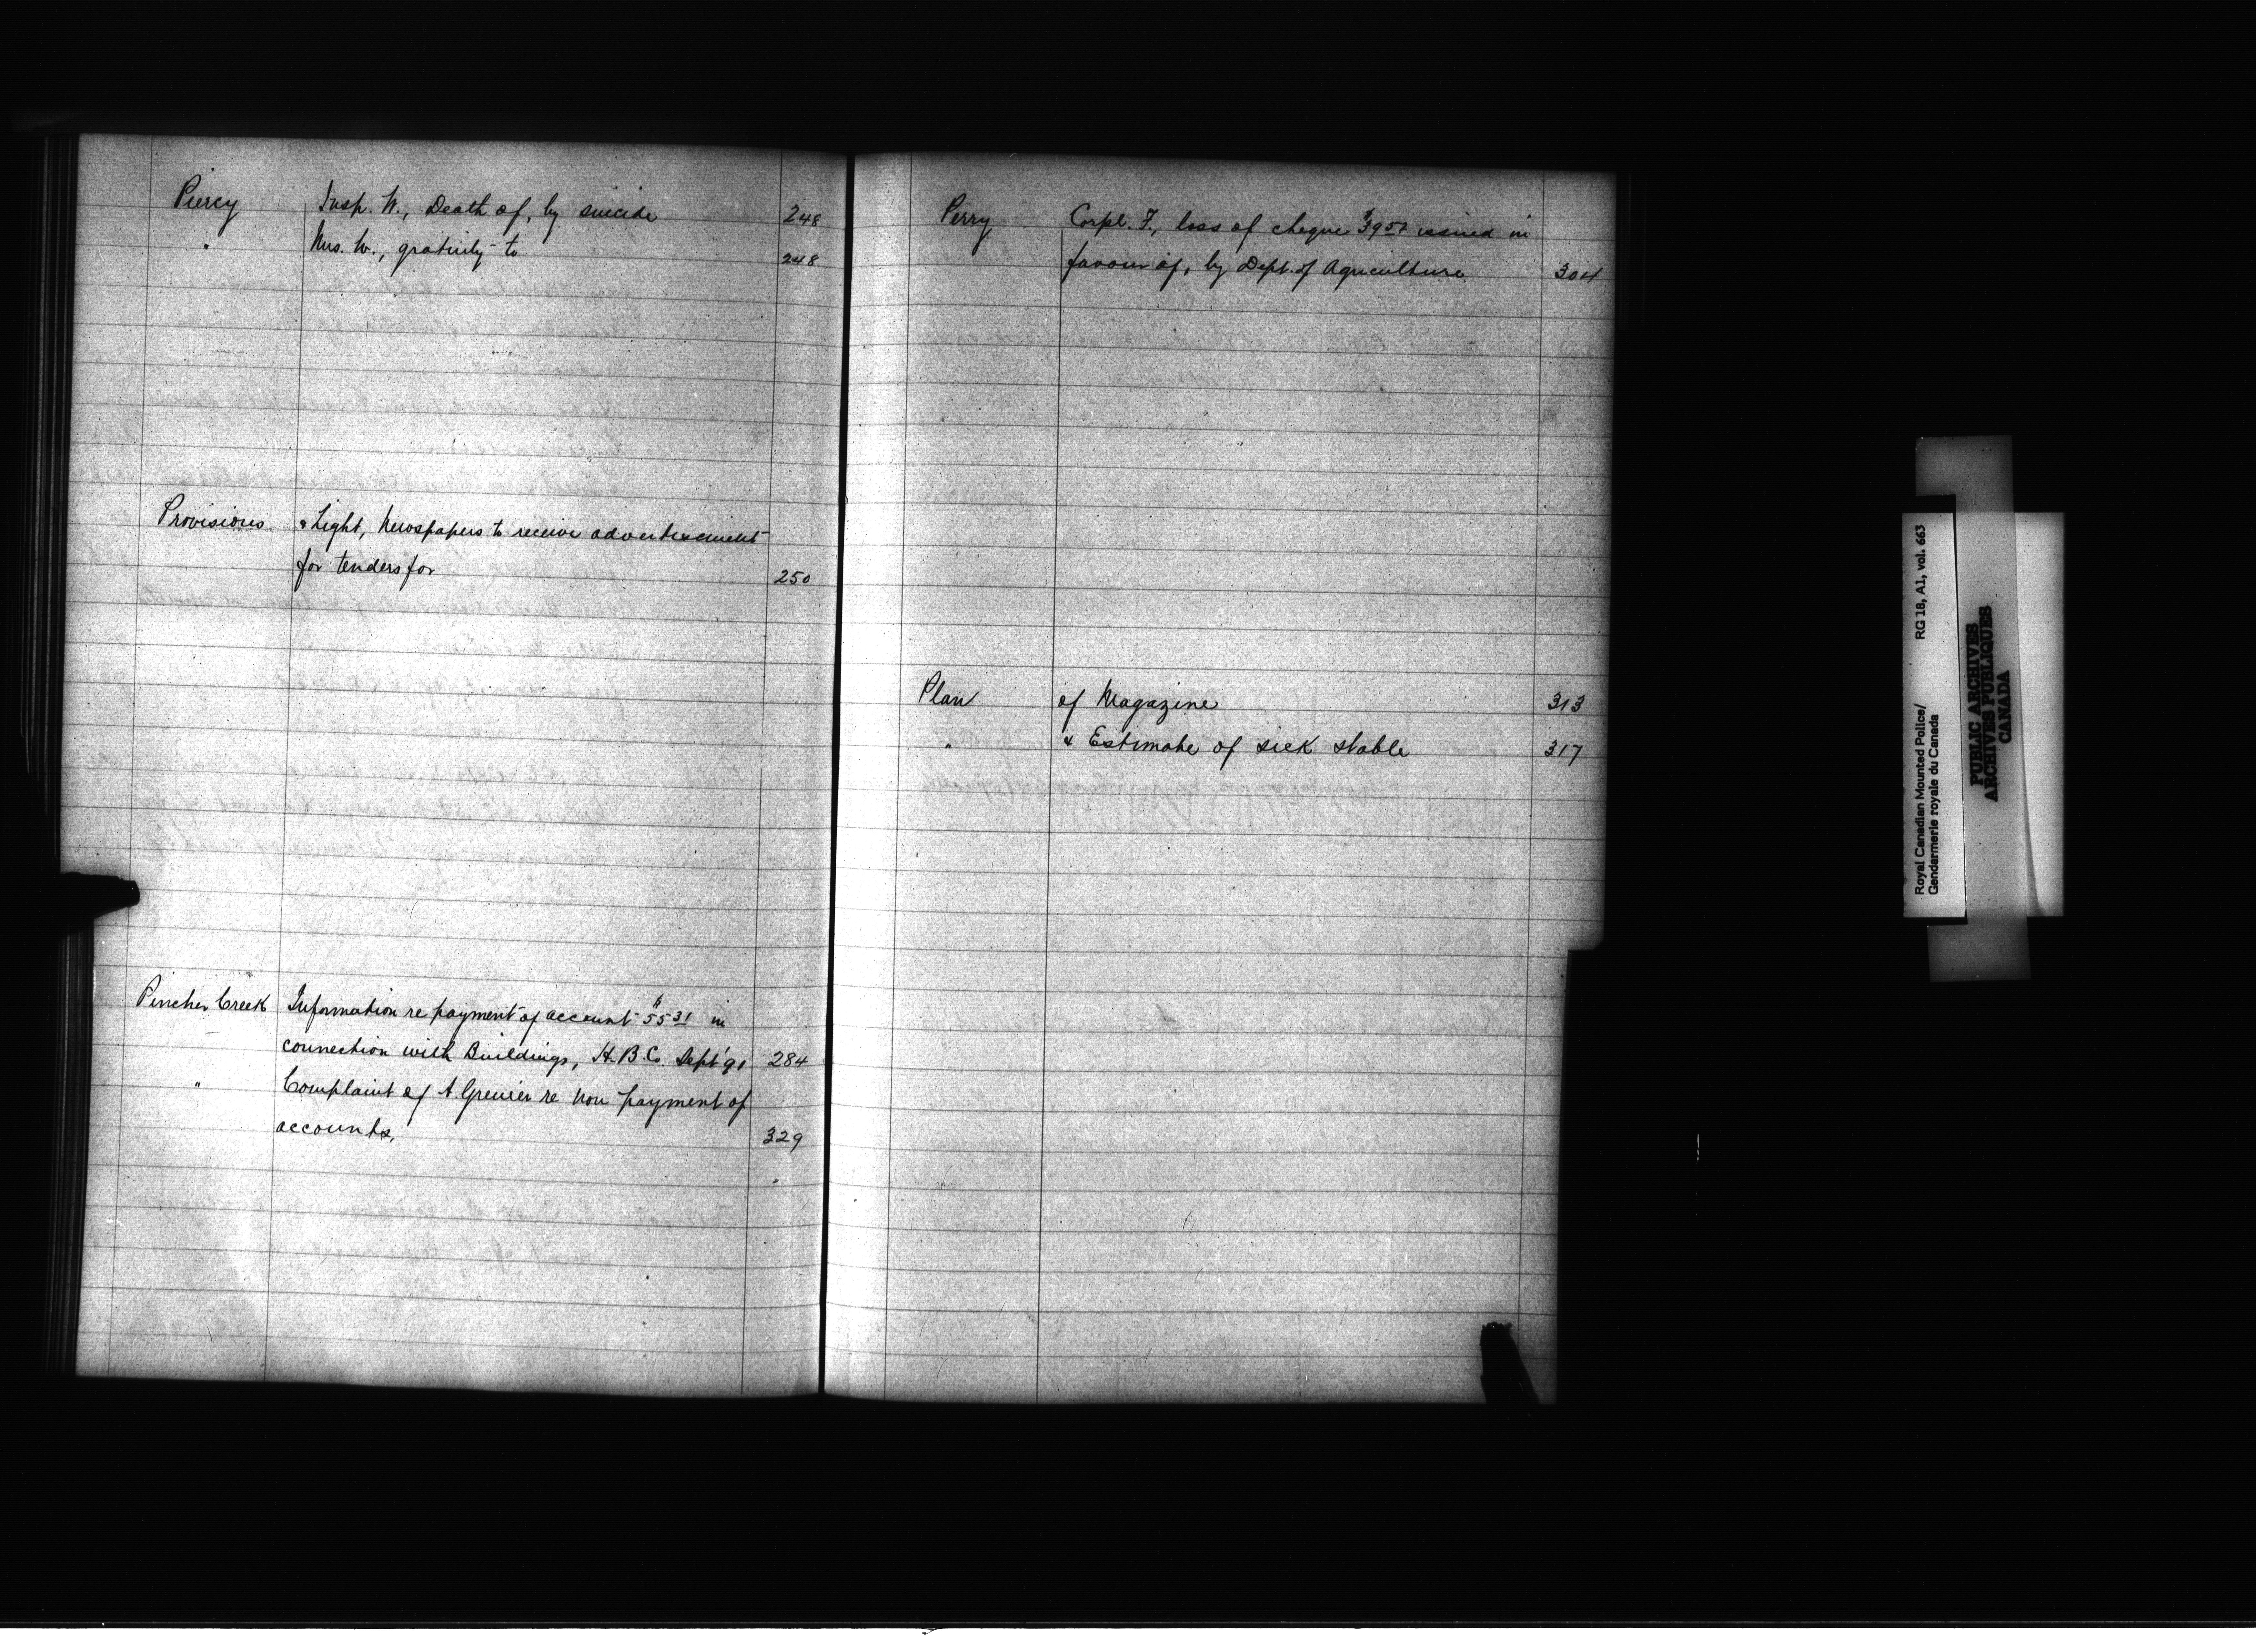 Piercy Insp. W., Death of, by suicide 248
" Mrs. W., gratuity to 248
Provisions & Light, Newspapers to receive advertisement
for tenders for 250
Pincher Creek Information re payment of account $55.31 in
connection with Buildings, H.B.Co. Sept '91 284
" Complaint of A. Grenier re non payment of
accounts, 329
Perry Corpl. F., loss of cheque $39.50 issued in
favour of, by Dept. of Agriculture 304
Plan of Magazine 313
" & Estimate of sick stable 317
Royal Canadian Mounted Police/ RG 18, A1, vol. 663
Gendarmerie royale du Canada
PUBLIC ARCHIVES
ARCHIVES PUBLIQUES
CANADA